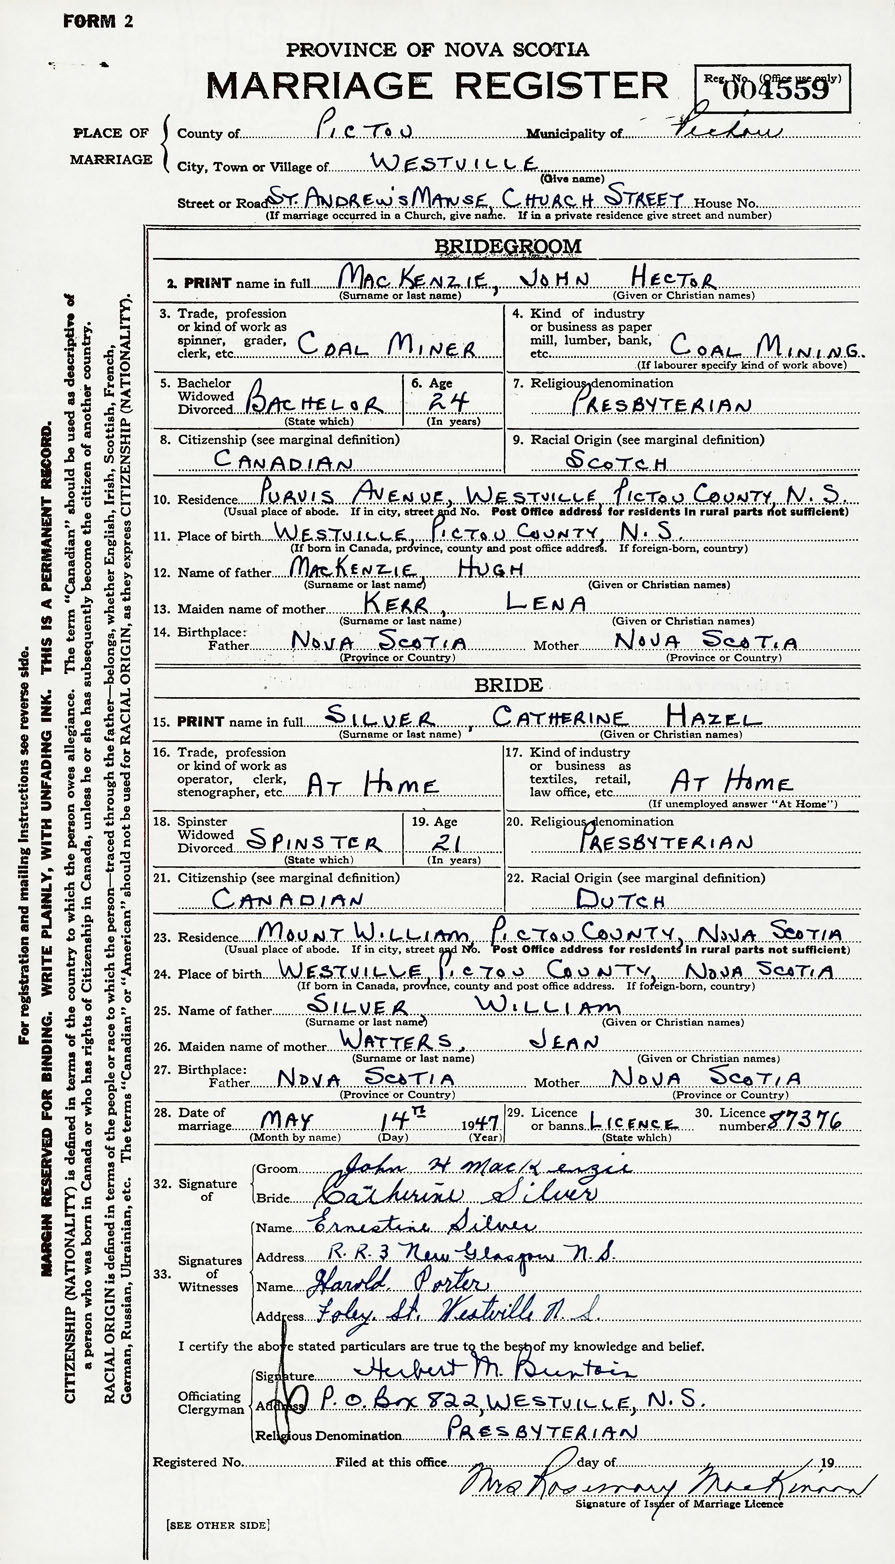 FORM 2
PROVINCE OF NOVA SCOTIA
MARRIAGE REGISTER
Reg. No. (Office use only)
004559
PLACE OF MARRIAGE
County of PICTOU Municipality of Pictou
City, Town or Village of WESTVILLE
(Give name)
Street or Road ST. ANDREW'S MANSE, CHURCH STREET House No.
(If marriage occurred in a Church, give name. If in a private residence give street and number)
BRIDEGROOM
2. PRINT name in full MACKENZIE, JOHN HECTOR
(Surname or last name) (Given or Christian names)
3. Trade, profession or kind of work as spinner, grader, clerk, etc. COAL MINER
4. Kind of industry or business as paper mill, lumber, bank, etc. COAL MINING.
(If labourer specify kind of work above)
5. Bachelor Widowed Divorced BACHELOR
(State which)
6. Age 24
(In years)
7. Religious denomination
PRESBYTERIAN
8. Citizenship (see marginal definition)
CANADIAN
9. Racial Origin (see marginal definition)
SCOTCH
10. Residence PURVIS AVENUE, WESTVILLE, PICTOU COUNTY, N. S.
(Usual place of abode. If in city, street and No. Post Office address for residents in rural parts not sufficient)
11. Place of birth WESTVILLE, PICTOU COUNTY, N. S.
(If born in Canada, province, county and post office address. If foreign-born, country)
12. Name of father MACKENZIE, HUGH
(Surname or last name) (Given or Christian names)
13. Maiden name of mother KERR, LENA
(Surname or last name) (Given or Christian names)
14. Birthplace:
Father NOVA SCOTIA Mother NOVA SCOTIA
(Province or Country) (Province or Country)
BRIDE
15. PRINT name in full SILVER, CATHERINE HAZEL
(Surname or last name) (Given or Christian names)
16. Trade, profession or kind of work as operator, clerk, stenographer, etc. AT HOME
17. Kind of industry or business as textiles, retail, law office, etc. AT HOME
(If unemployed answer "At Home")
18. Spinster Widowed Divorced SPINSTER
(State which)
19. Age 21
(In years)
20. Religious denomination
PRESBYTERIAN
21. Citizenship (see marginal definition)
CANADIAN
22. Racial Origin (see marginal definition)
DUTCH
23. Residence MOUNT WILLIAM, PICTOU COUNTY, NOVA SCOTIA
(Usual place of abode. If in city, street and No. Post Office address for residents in rural parts not sufficient)
24. Place of birth WESTVILLE, PICTOU COUNTY, NOVA SCOTIA
(If born in Canada, province, county and post office address. If foreign-born, country)
25. Name of father SILVER, WILLIAM
(Surname or last name) (Given or Christian names)
26. Maiden name of mother WATTERS, JEAN
(Surname or last name) (Given or Christian names)
27. Birthplace:
Father NOVA SCOTIA Mother NOVA SCOTIA
(Province or Country) (Province or Country)
28. Date of marriage MAY 14TH 1947
(Month by name) (Day) (Year)
29. Licence or banns LICENCE
(State which)
30. Licence number 87376
32. Signature of
Groom John H MacKenzie
Bride Catherine Silver
33. Signatures of Witnesses
Name Ernestine Silver
Address R. R. 3 New Glasgow N. S.
Name Harold Porter
Address Foley. St. Westville N. S.
I certify the above stated particulars are true to the best of my knowledge and belief.
Officiating Clergyman
Signature Herbert M. Buntain
Address P. O. BOX 822, WESTVILLE, N. S.
Religious Denomination PRESBYTERIAN
Registered No. Filed at this office day of 19
Mrs Rosemary MacKinnon
Signature of Issuer of Marriage Licence
[SEE OTHER SIDE]
For registration and mailing instructions see reverse side.
MARGIN RESERVED FOR BINDING. WRITE PLAINLY, WITH UNFADING INK. THIS IS A PERMANENT RECORD.
CITIZENSHIP (NATIONALITY) is defined in terms of the country to which the person owes allegiance. The term "Canadian" should be used as descriptive of
a person who was born in Canada or who has rights of Citizenship in Canada, unless he or she has subsequently become the citizen of another country.
RACIAL ORIGIN is defined in terms of the people or race to which the person—traced through the father—belongs, whether English, Irish, Scottish, French,
German, Russian, Ukrainian, etc. The terms "Canadian" or "American" should not be used for RACIAL ORIGIN, as they express CITIZENSHIP (NATIONALITY).